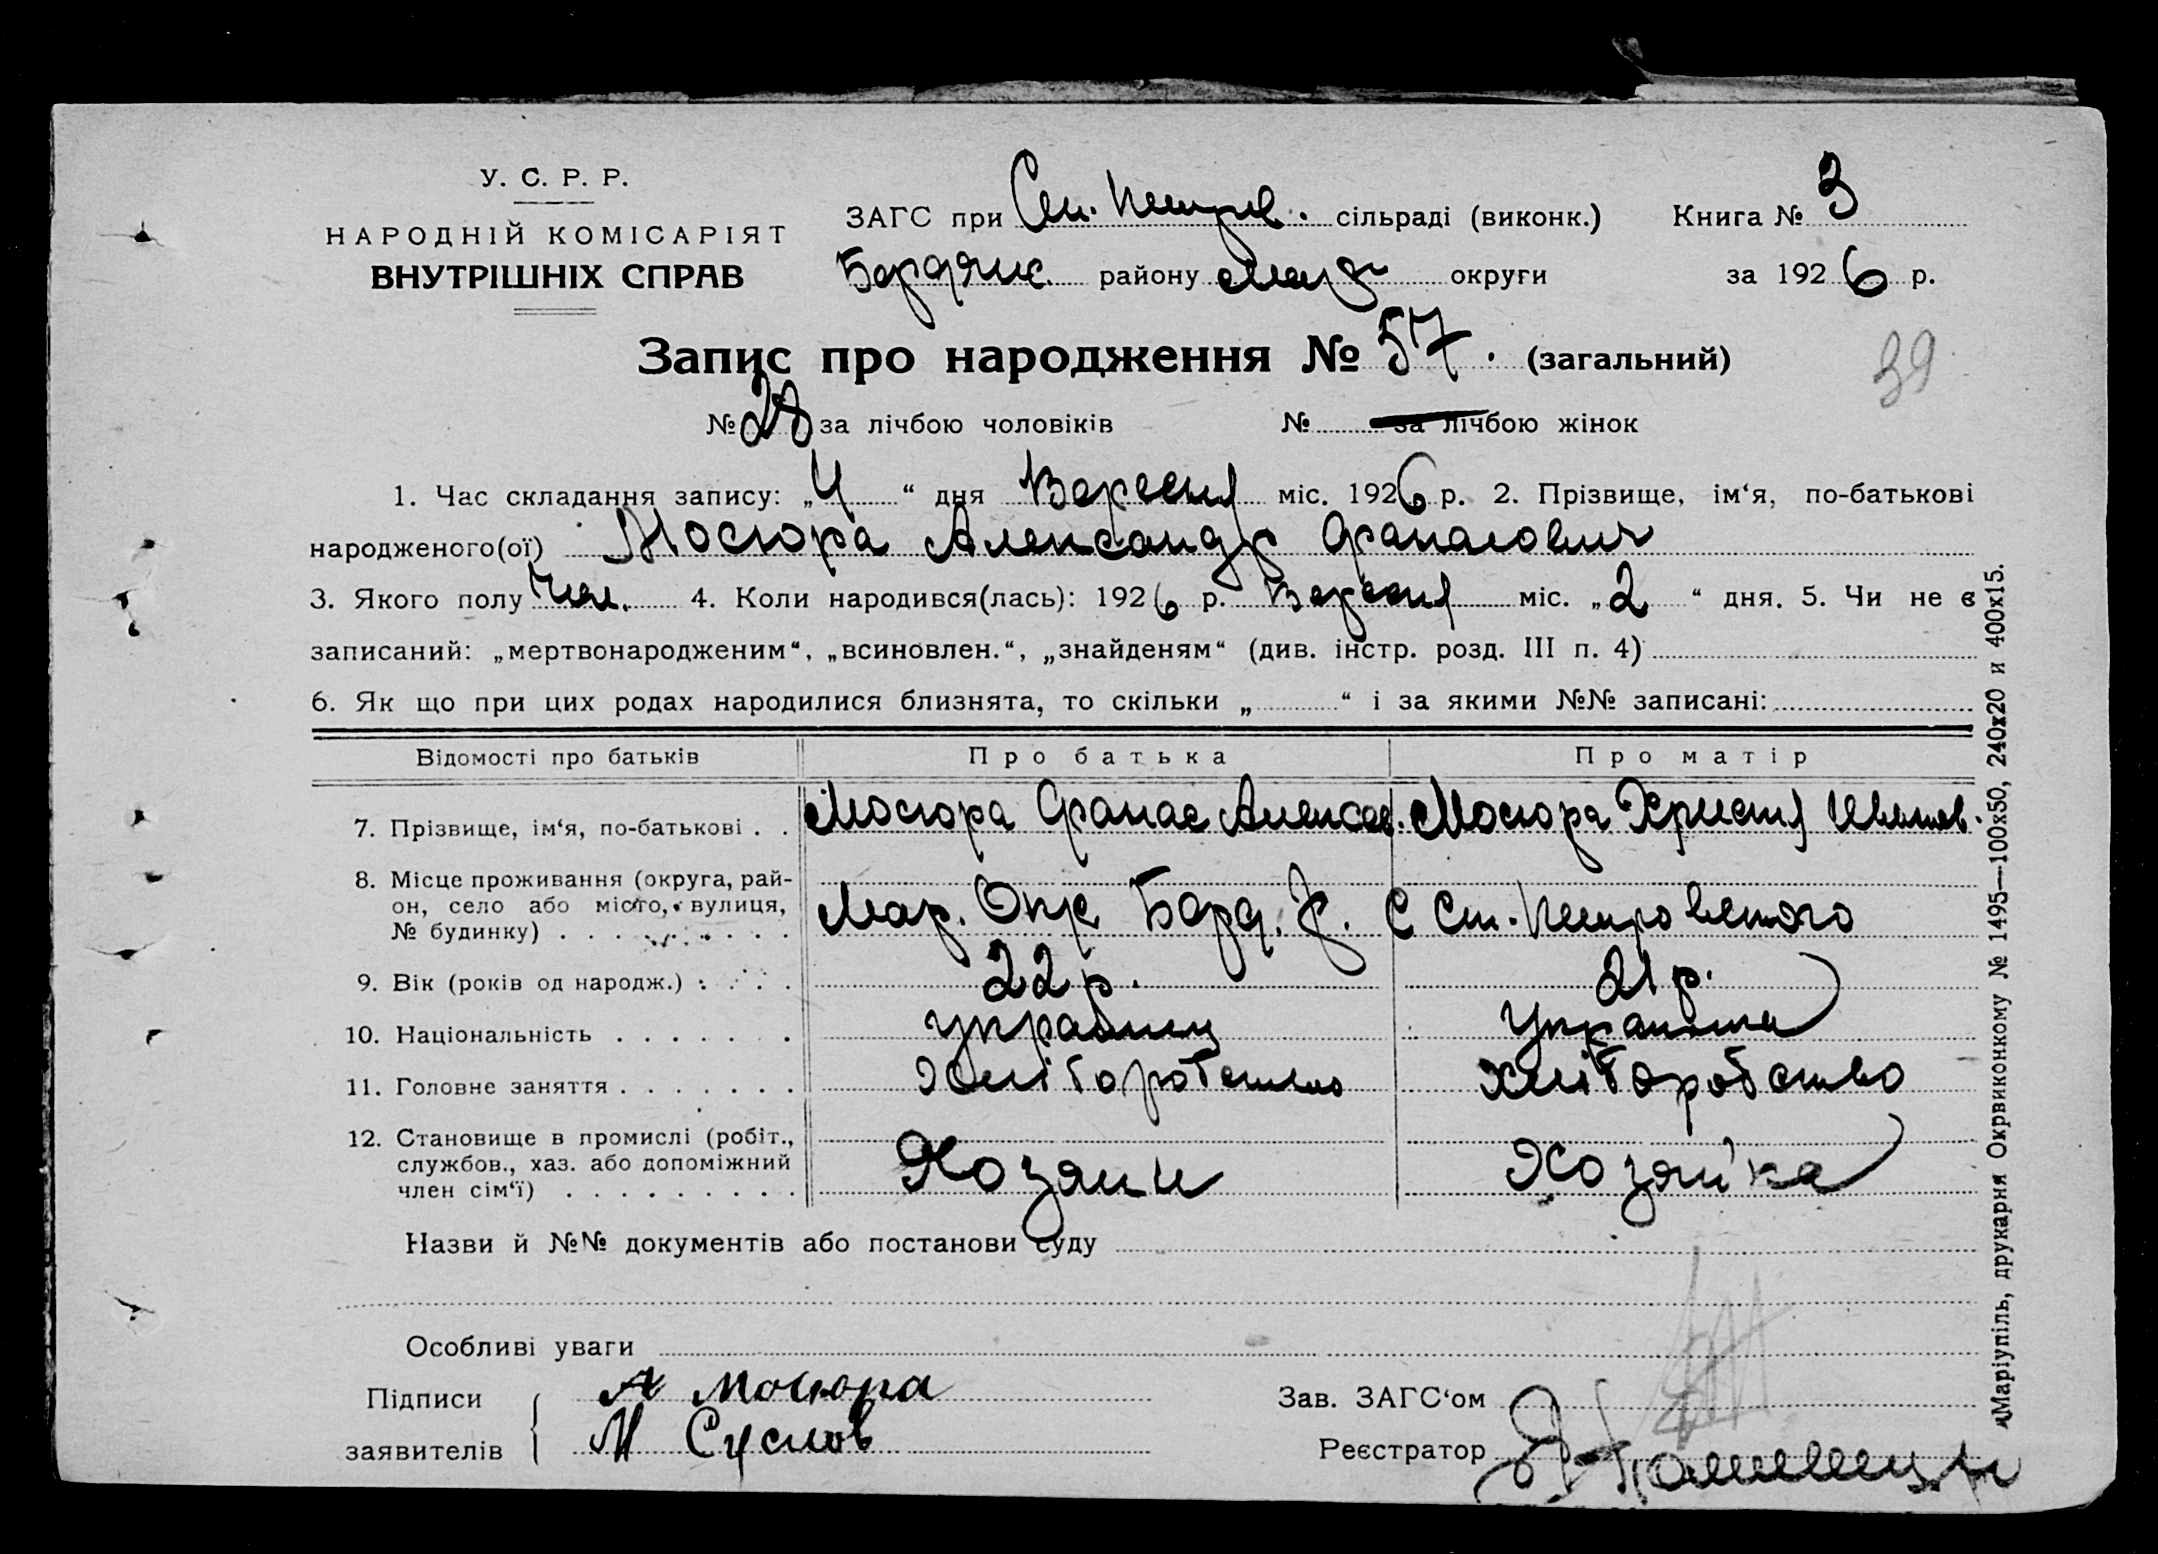 У. С. Р. Р.
НАРОДНІЙ КОМІСАРІЯТ
ВНУТРІШНІХ СПРАВ
ЗАГС при Ст. Петров. сільраді (виконк.) Книга № 3
Бердянс. району Мар. округи за 1926 р.
Запис про народження № 57. (загальний)
39
№ 28 за лічбою чоловіків № за лічбою жінок
1. Час складання запису: „4“ дня Вересня міс. 1926 р. 2. Прізвище, ім‘я, по-батькові
народженого(ої) Мосюра Александр Фанасович
3. Якого полу Чол. 4. Коли народився(лась): 1926 р. Вересня міс. „2“ дня. 5. Чи не є
записаний: „мертвонародженим“, „всиновлен.“, „знайденям“ (див. інстр. розд. III п. 4)
6. Як що при цих родах народилися близнята, то скільки „ “ і за якими №№ записані:
Відомості про батьків Про батька Про матір
7. Прізвище, ім‘я, по-батькові . . Мосюра Фанас Алексеев. Мосюра Христя Иванов.
8. Місце проживання (округа, рай-
он, село або місто, вулиця,
№ будинку) . . . . . . . . . Мар. Окр Берд. р. С Ст. Петровского
9. Вік (років од народж.) . . . . 22 р. 21 р.
10. Національність . . . . . . . украинец Украинка
11. Головне заняття . . . . . . . Хліборобство хліборобство
12. Становище в промислі (робіт.,
службов., хаз. або допоміжний
член сім‘ї) . . . . . . . . . Хозяин Хозяйка
Назви й №№ документів або постанови суду
Особливі уваги
Підписи А Мосюра Зав. ЗАГС‘ом
заявителів М Суслов Реєстратор
Маріупіль, друкарня Окрвиконкому № 1495—100х50, 240х20 и 400х15.